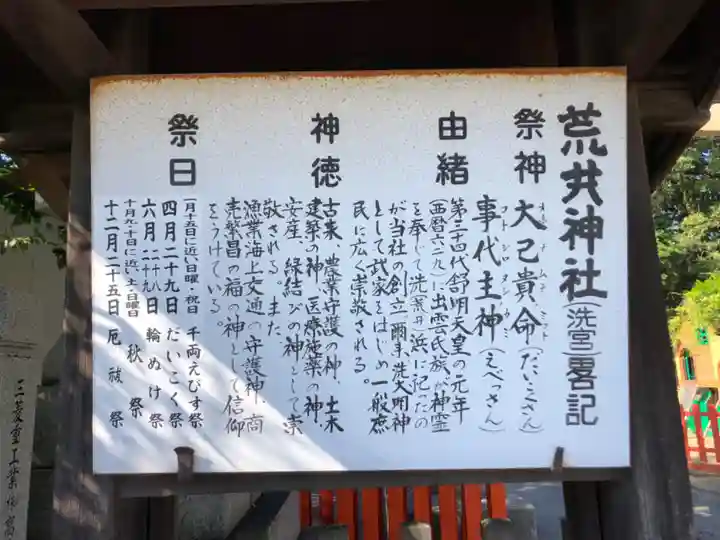 荒井神社(洗宮)畧記
祭神
大己貴命(だいこくさん)
オオナムチノミコト
事代主神(えべっさん)
コトシロヌシノカミ
由緒
第三十四代舒明天皇の元年
(西暦六二九)に出雲氏族が神霊
を奉じて洗(荒井)浜に祀ったの
が当社の創立。爾来洗大明神
として武家をはじめ一般庶
民に広く崇敬される。
神徳
古来、農業守護の神、土木
建築の神、医療施薬の神、
安産、縁結びの神として崇
敬される。また
漁業海上交通の守護神、商
売繁昌の福の神として信仰
をうけている。
祭日
一月十五日に近い日曜・祝日 千両えびす祭
四月二十九日 だいこく祭
六月二十八 二十九日 輪ぬけ祭
十月九・十日に近い土・日曜日 秋祭
十二月二十五日 厄祓祭
三菱重工業